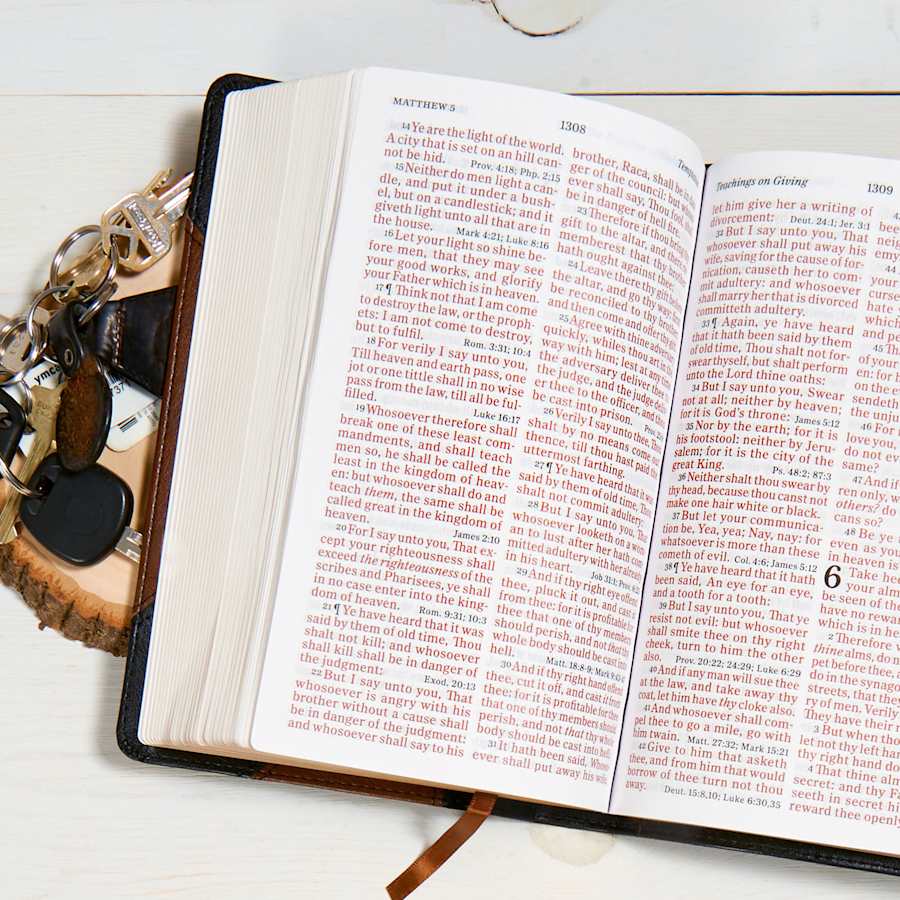 MATTHEW 5
1308
14 Ye are the light of the world.
A city that is set on an hill can-
not be hid. Prov. 4:18; Php. 2:15
15 Neither do men light a can-
dle, and put it under a bush-
el, but on a candlestick; and it
giveth light unto all that are in
the house. Mark 4:21; Luke 8:16
16 Let your light so shine be-
fore men, that they may see
your good works, and glorify
your Father which is in heaven.
17 ¶ Think not that I am come
to destroy the law, or the proph-
ets: I am not come to destroy,
but to fulfil. Rom. 3:31; 10:4
18 For verily I say unto you,
Till heaven and earth pass, one
jot or one tittle shall in no wise
pass from the law, till all be ful-
filled. Luke 16:17
19 Whosoever therefore shall
break one of these least com-
mandments, and shall teach
men so, he shall be called the
least in the kingdom of heav-
en: but whosoever shall do and
teach them, the same shall be
called great in the kingdom of
heaven. James 2:10
20 For I say unto you, That ex-
cept your righteousness shall
exceed the righteousness of the
scribes and Pharisees, ye shall
in no case enter into the king-
dom of heaven. Rom. 9:31; 10:3
21 ¶ Ye have heard that it was
said by them of old time, Thou
shalt not kill; and whosoever
shall kill shall be in danger of
the judgment: Exod. 20:13
22 But I say unto you, That
whosoever is angry with his
brother without a cause shall
be in danger of the judgment:
and whosoever shall say to his
brother, Raca, shall be in
ger of the council: but whoso-
ever shall say, Thou fool, shall
be in danger of hell fire.
23 Therefore if thou bring
gift to the altar, and there
memberest that thy brother
hath ought against thee;
24 Leave there thy gift before
the altar, and go thy way;
be reconciled to thy brother,
and then come and offer thy gift.
25 Agree with thine adversary
quickly, whiles thou art in the
way with him; lest at any time
the adversary deliver thee to
the judge, and the judge deliv-
er thee to the officer, and thou
be cast into prison.
26 Verily I say unto thee, Thou
shalt by no means come out
thence, till thou hast paid the
uttermost farthing.
27 ¶ Ye have heard that it was
said by them of old time, Thou
shalt not commit adultery:
28 But I say unto you, That
whosoever looketh on a wom-
an to lust after her hath com-
mitted adultery with her already
in his heart. Job 31:1;
29 And if thy right eye offend
thee, pluck it out, and cast it
from thee: for it is profitable for
thee that one of thy members
should perish, and not that thy
whole body should be cast into
hell. Matt. 18:8-9; Mark 9:43
30 And if thy right hand offend
thee, cut it off, and cast it from
thee: for it is profitable for thee
that one of thy members should
perish, and not that thy whole
body should be cast into hell.
31 It hath been said, Whoso-
ever shall put away his wife,
Teachings on Giving
1309
let him give her a writing of
divorcement: Deut. 24:1; Jer. 3:1
32 But I say unto you, That
whosoever shall put away his
wife, saving for the cause of for-
nication, causeth her to com-
mit adultery: and whosoever
shall marry her that is divorced
committeth adultery.
33 ¶ Again, ye have heard
that it hath been said by them
of old time, Thou shalt not for-
swear thyself, but shalt perform
unto the Lord thine oaths:
34 But I say unto you, Swear
not at all; neither by heaven;
for it is God's throne: James 5:12
35 Nor by the earth; for it is
his footstool: neither by Jeru-
salem; for it is the city of the
great King. Ps. 48:2; 87:3
36 Neither shalt thou swear by
thy head, because thou canst not
make one hair white or black.
37 But let your communica-
tion be, Yea, yea; Nay, nay: for
whatsoever is more than these
cometh of evil. Col. 4:6; James 5:12
38 ¶ Ye have heard that it hath
been said, An eye for an eye,
and a tooth for a tooth:
39 But I say unto you, That ye
resist not evil: but whosoever
shall smite thee on thy right
cheek, turn to him the other
also. Prov. 20:22; 24:29; Luke 6:29
40 And if any man will sue thee
at the law, and take away thy
coat, let him have thy cloke also.
41 And whosoever shall com-
pel thee to go a mile, go with
him twain. Matt. 27:32; Mark 15:21
42 Give to him that asketh
thee, and from him that would
borrow of thee turn not thou
away. Deut. 15:8,10; Luke 6:30,35
been
neigh
emy
44
your
curse
hate
which
and p
45 Th
of your
en: for
on the e
sendeth
the unju
46 For
love you,
do not ev
same?
47 And if
ren only, w
others? do
cans so?
48 Be ye
even as you
in heaven is
6 Take hee
your alm
be seen of the
have no rewa
which is in hea
2 Therefore w
thine alms, do n
pet before thee, a
do in the synagog
streets, that they
ry of men. Verily
They have their r
3 But when thou
let not thy left ha
thy right hand do
4 That thine alm
secret: and thy Fa
seeth in secret hi
reward thee openly